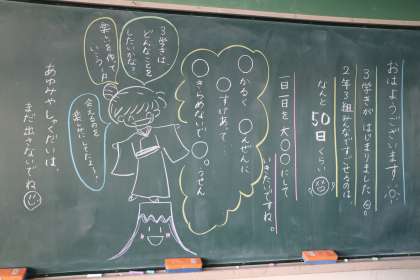 おはようございます
3学きがはじまりました
2年3組みんなですごせるのは
なんと50日くらい
一日一日を大○○にして
いきたいですね。
○かるく ○んぜんに
○すけあって…
○きらめないで ○。っせん
3学きは
どんなことを
したいかな?
楽しいを作って
いこうカ
会えるのを
楽しみにしてたよ〜
あゆみやしゅくだいは、
まだ出さないでね